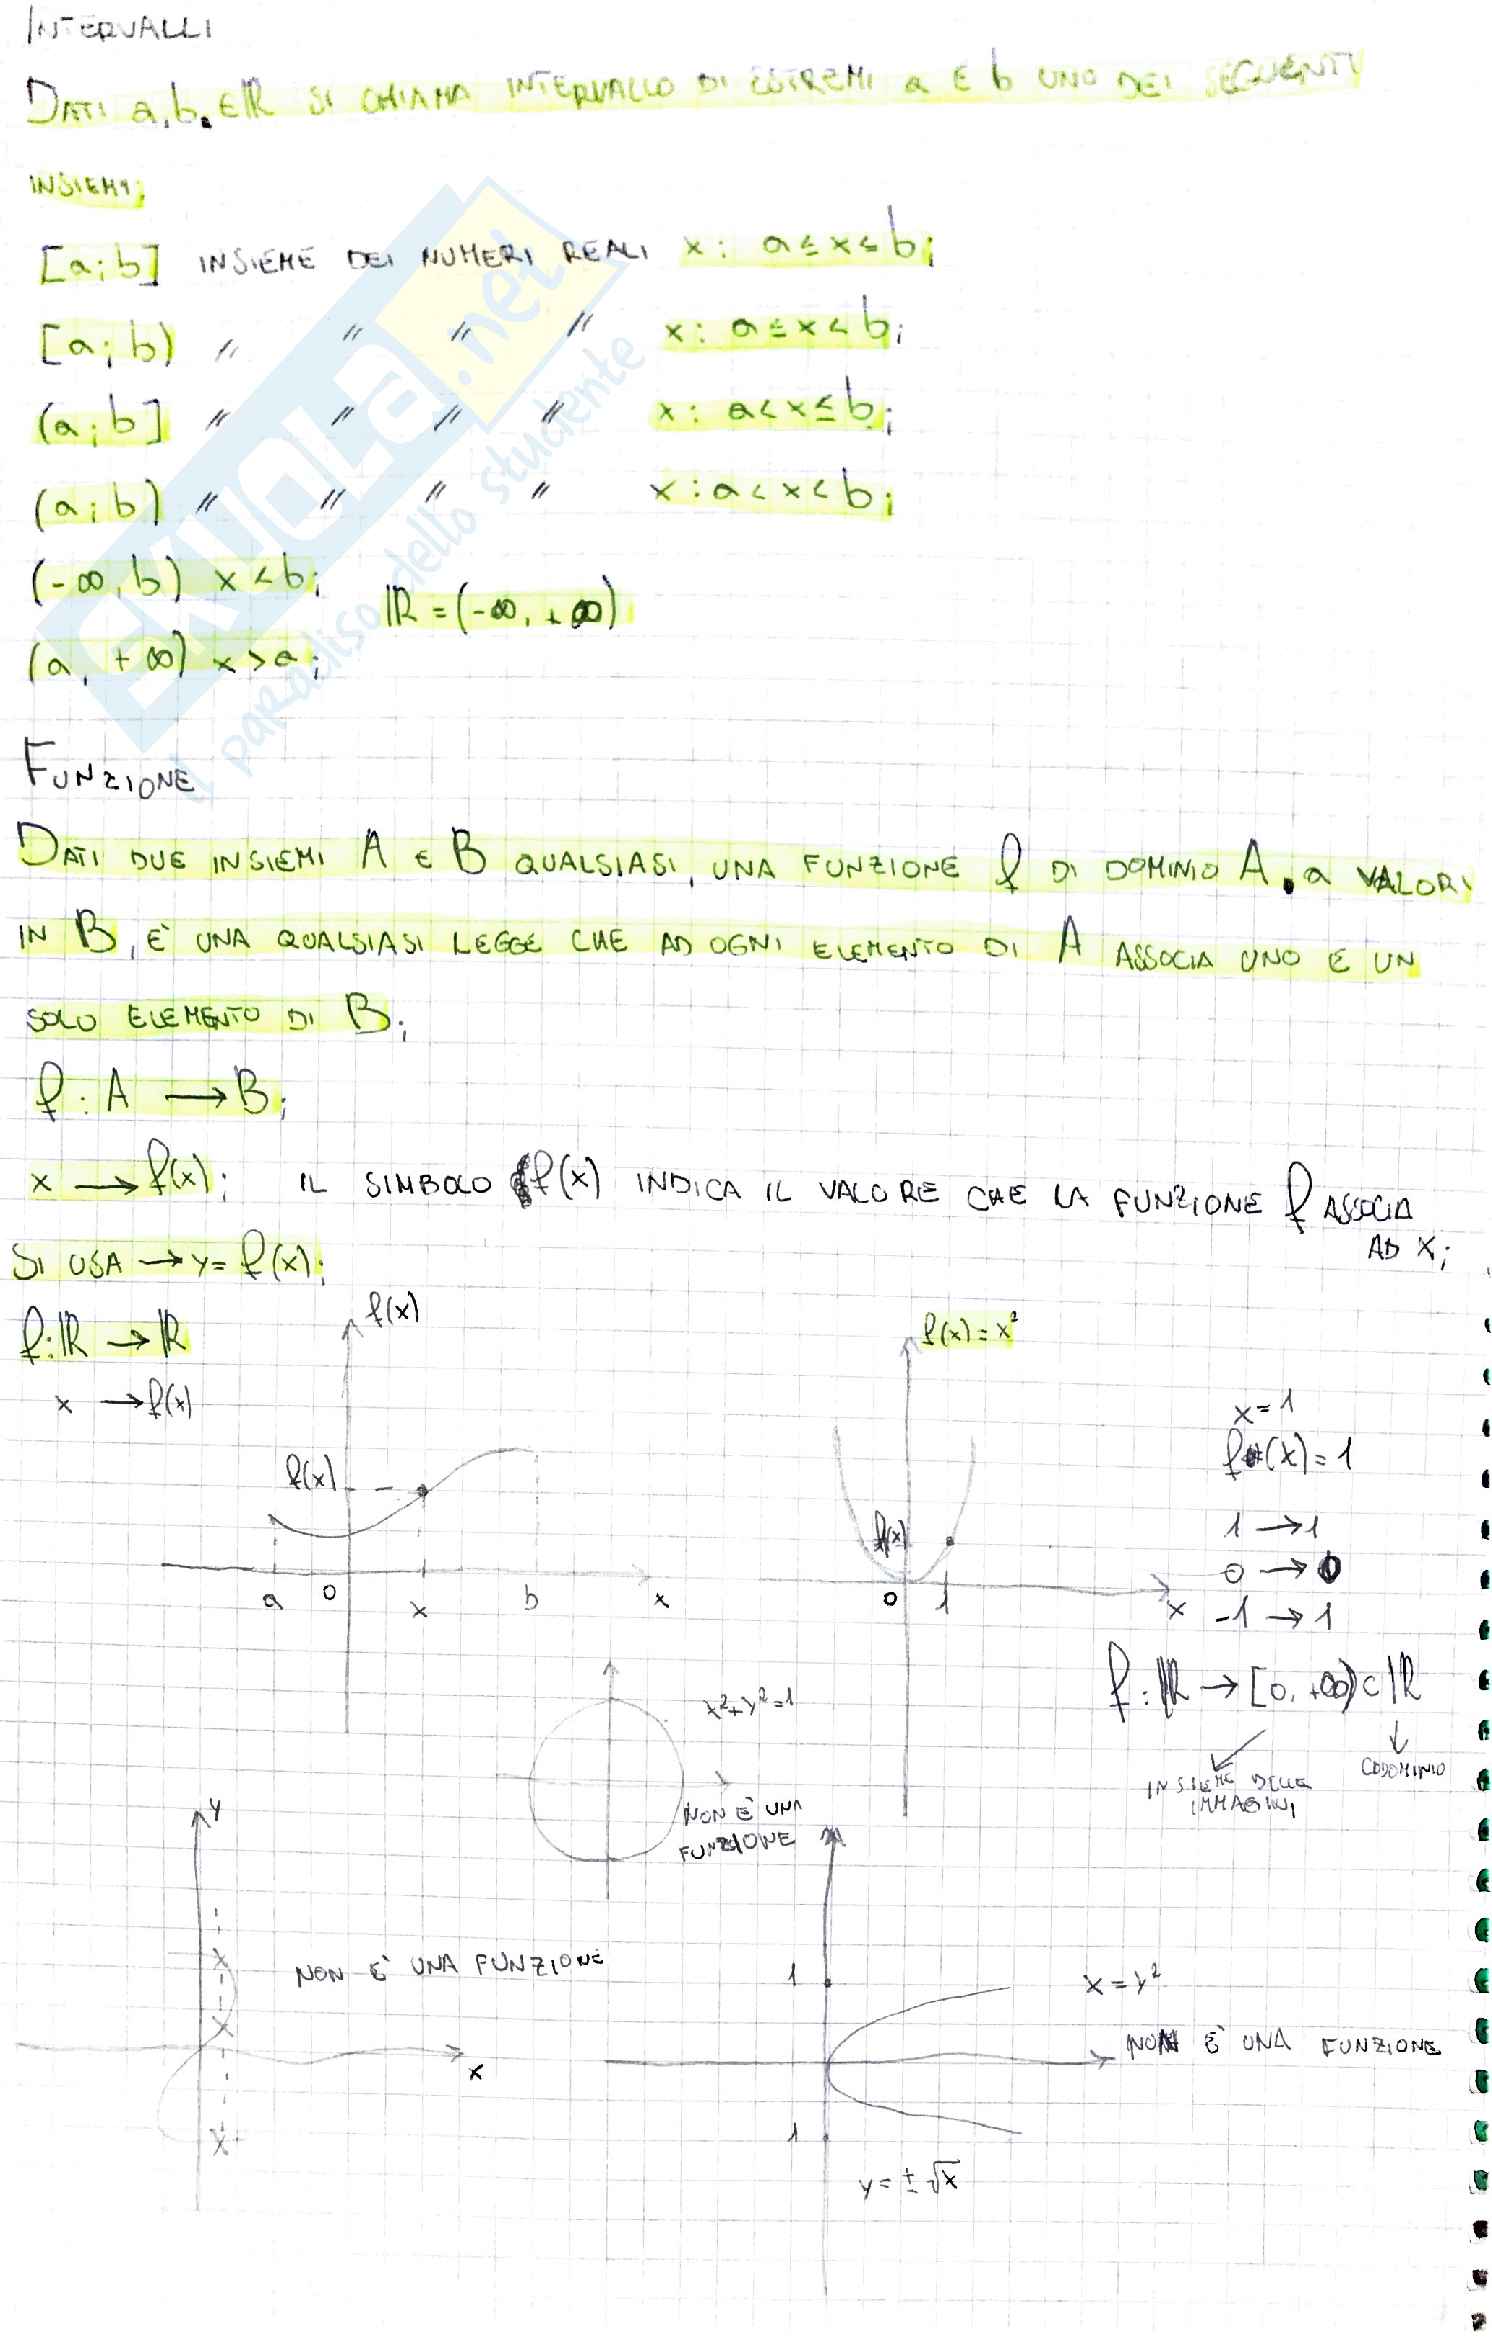 INTERVALLI
DATI a, b. ∈ ℝ SI CHIAMA INTERVALLO DI ESTREMI a E b UNO DEI SEGUENTI
INSIEMI;
[a; b] INSIEME DEI NUMERI REALI x: a ≤ x ≤ b;
[a; b) " " " " x: a ≤ x < b;
(a; b] " " " " x: a < x ≤ b;
(a; b) " " " " x: a < x < b;
(-∞, b) x < b;
ℝ = (-∞, +∞)
(a, +∞) x > a;
SKUOLA.net
il paradiso dello studente
FUNZIONE
DATI DUE INSIEMI A E B QUALSIASI, UNA FUNZIONE f DI DOMINIO A, a VALORI
IN B, E' UNA QUALSIASI LEGGE CHE AD OGNI ELEMENTO DI A ASSOCIA UNO E UN
SOLO ELEMENTO DI B;
f : A → B;
x → f(x); IL SIMBOLO f(x) INDICA IL VALORE CHE LA FUNZIONE f ASSOCIA
AD X;
SI USA → y = f(x);
f: ℝ → ℝ
x → f(x)
f(x)
f(x)
a 0 x b x
f(x) = x²
f(x)
0 1 x
x = 1
f(x) = 1
1 → 1
0 → 0
-1 → 1
f : ℝ → [0, +∞) ⊂ ℝ
INSIEME DELLE
IMMAGINI
CODOMINIO
x² + y² = 1
NON E' UNA
FUNZIONE
y
NON E' UNA FUNZIONE
x
1
x = y²
NON E' UNA FUNZIONE
1
y = ± √x